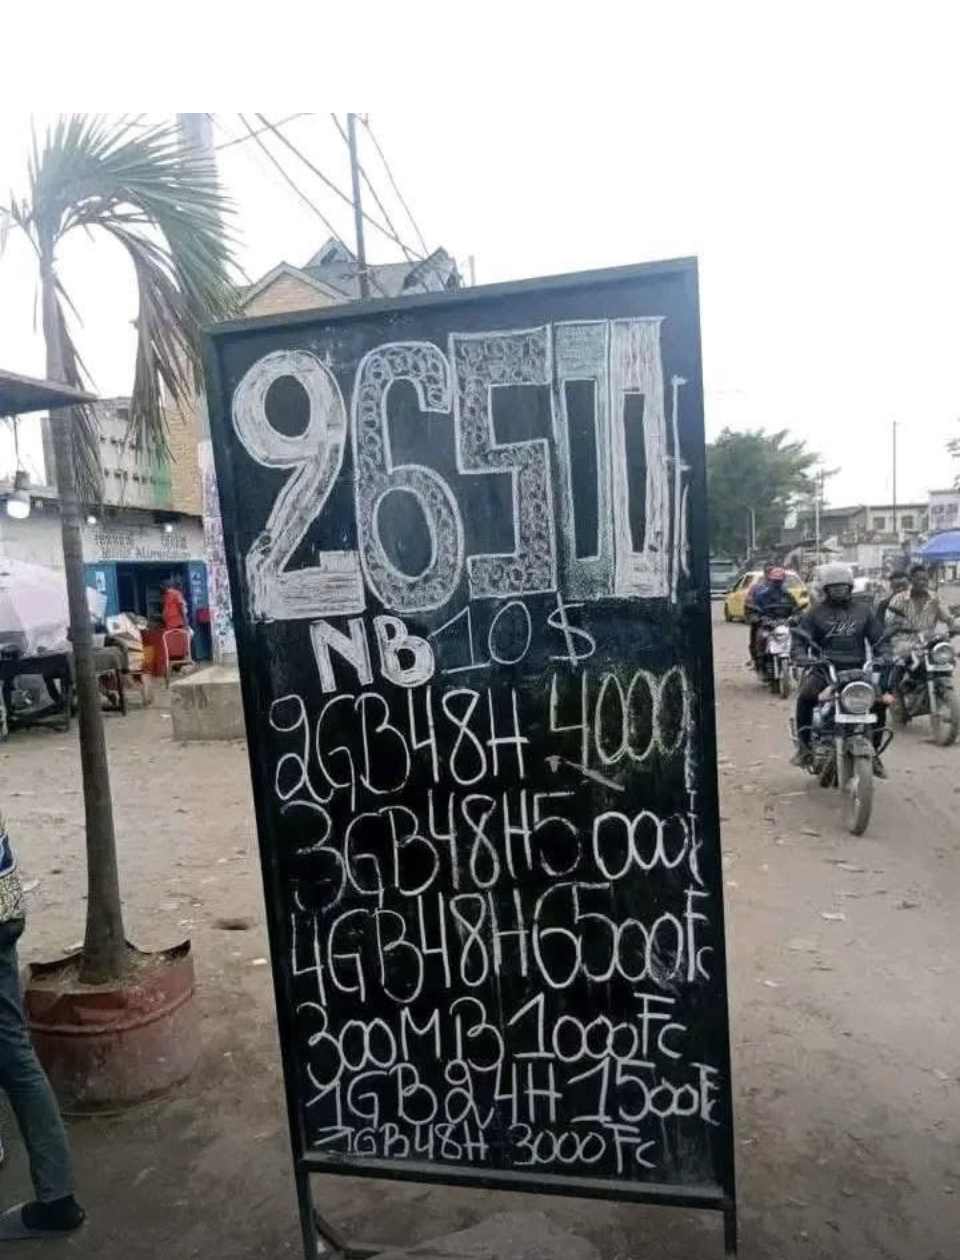 26500 Fc
NB 10 $
2GB 48H 4000
3GB 48H 5000F
4GB 48H 6500Fc
300MB 1000Fc
1GB 24H 1500Fc
1GB 48H 3000Fc
Alimentation